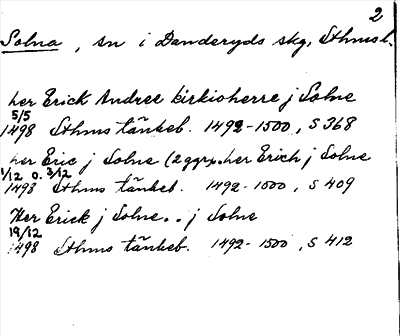 2
Solna, sn i Danderyds skg, Sthmsl.
her Erick Andree kirkioherre j Solne
5/5
1498 Sthms tänkeb. 1492-1500, S 368
her Eric j Solne (2 ggr, her Erich j Solne
1/12 o. 3/12
1498 Sthms tänkeb. 1492-1500, s 409
Her Erick j Solne.. j Solne
19/12
1498 Sthms tänkeb. 1492-1500, S 412